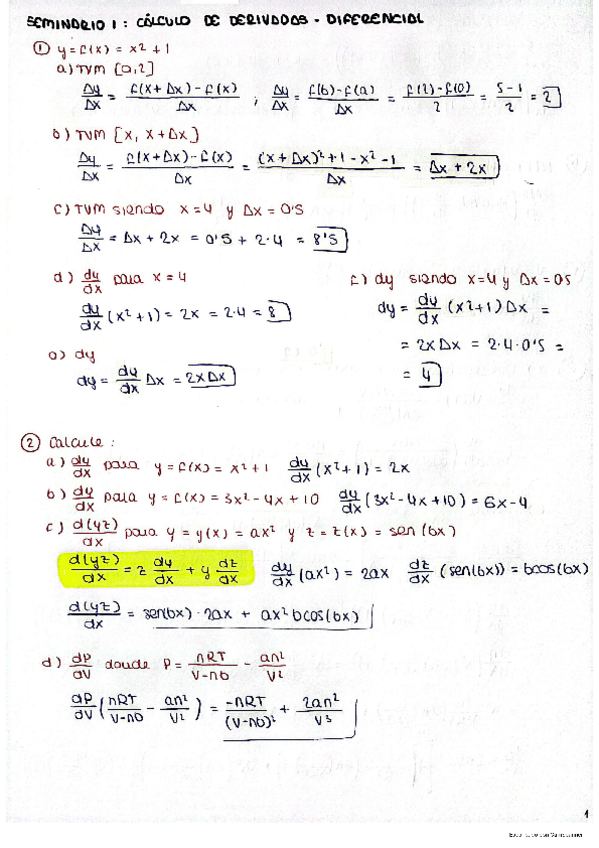 SEMINARIO 1: CÁLCULO DE DERIVADAS - DIFERENCIAL
① y = f(x) = x² + 1
a) TVM [0,2]
Δy/Δx = (f(x+Δx) - f(x))/Δx ; Δy/Δx = (f(b) - f(a))/Δx = (f(2) - f(0))/2 = (5-1)/2 = 2
b) TVM [x, x+Δx]
Δy/Δx = (f(x+Δx) - f(x))/Δx = ((x+Δx)² + 1 - x² - 1)/Δx = Δx + 2x
c) TVM siendo x=4 y Δx = 0'5
Δy/Δx = Δx + 2x = 0'5 + 2·4 = 8'5
d) dy/dx para x=4
dy/dx (x²+1) = 2x = 2·4 = 8
e) dy
dy = dy/dx Δx = 2xΔx
f) dy siendo x=4 y Δx = 0'5
dy = dy/dx (x²+1) Δx =
= 2xΔx = 2·4·0'5 =
= 4
② Calcule:
a) dy/dx para y = f(x) = x² + 1 dy/dx (x²+1) = 2x
b) dy/dx para y = f(x) = 3x² - 4x + 10 dy/dx (3x² - 4x + 10) = 6x - 4
c) d(yz)/dx para y = y(x) = ax² y z = z(x) = sen(bx)
d(yz)/dx = z dy/dx + y dz/dx dy/dx (ax²) = 2ax dz/dx (sen(bx)) = bcos(bx)
d(yz)/dx = sen(bx)·2ax + ax² bcos(bx)
d) dP/dV donde P = nRT/(V-nb) - an²/V²
dP/dV (nRT/(V-nb) - an²/V²) = -nRT/(V-nb)² + 2an²/V³
1